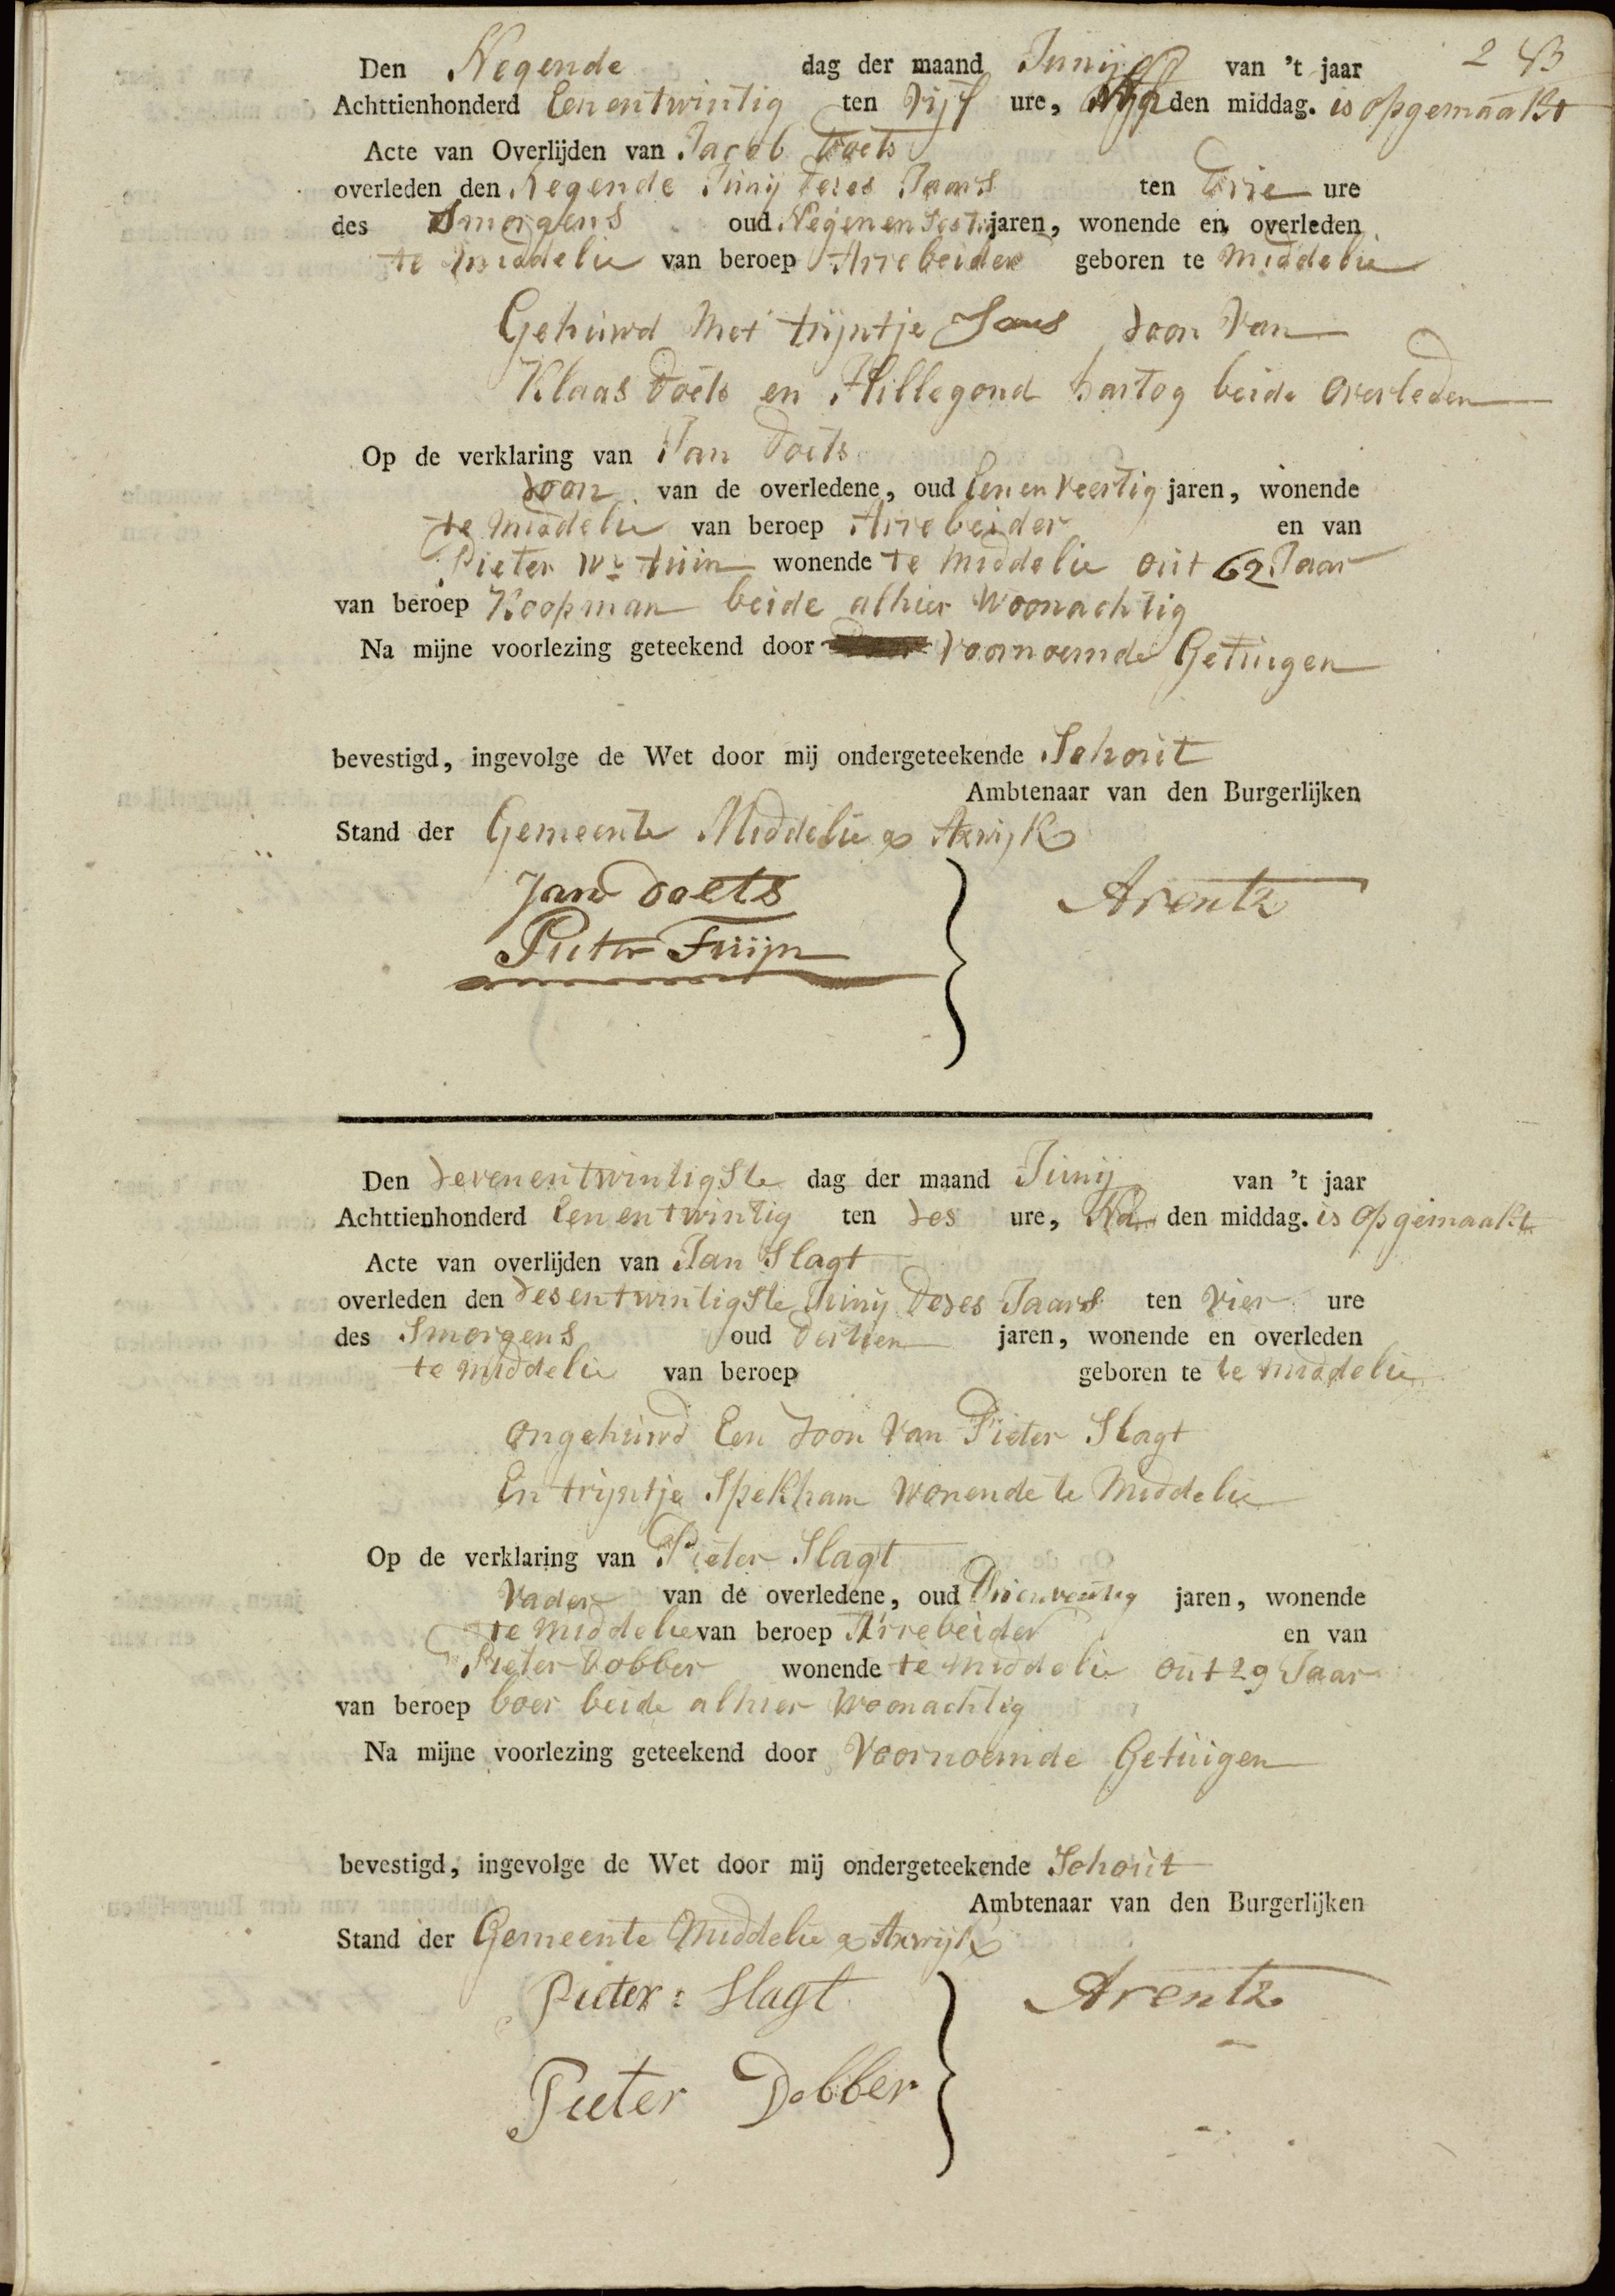 2
Den Negende dag der maand Junij van 't jaar
Achttienhonderd Eenentwintig ten vijf ure, den middag. is opgemaakt
Acte van Overlijden van Jacob Doets
overleden den Negende Junij Deses Jaars ten Drie ure
des Smorgens oud Negenensestig jaren, wonende en overleden
te middelie van beroep Arrebeider geboren te middelie
Gehuwd Met trijntje Jans Zoon Van
Klaas Doets en Hillegond hartog beide overleden
Op de verklaring van Jan Doets
Zoon van de overledene, oud Eenenveertig jaren, wonende
te middelie van beroep Arrebeider en van
Pieter Wz tuin wonende te middelie out 62 Jaar
van beroep Koopman beide alhier Woonachtig
Na mijne voorlezing geteekend door voornoemde Getuigen
bevestigd, ingevolge de Wet door mij ondergeteekende Schout
Ambtenaar van den Burgerlijken
Stand der Gemeente Middelie & Axwijk
Jan Doets
Arentz
Pieter Tuijn
Den Zevenentwintigste dag der maand Junij van 't jaar
Achttienhonderd Eenentwintig ten Zes ure, Na den middag. is opgemaakt
Acte van overlijden van Jan Slagt
overleden den Zesentwintigste Junij Dezes Jaars ten vier ure
des Smorgens oud Dertien jaren, wonende en overleden
te middelie van beroep geboren te te middelie
ongehuwd Een Zoon Van Pieter Slagt
En trijntje Spekham wonende te Middelie
Op de verklaring van Pieter Slagt
Vader van de overledene, oud Drienveertig jaren, wonende
te middelie van beroep Arrebeider en van
Pieter Dobber wonende te middelie out 29 Jaar
van beroep boer beide alhier woonachtig
Na mijne voorlezing geteekend door Voornoemde Getuigen
bevestigd, ingevolge de Wet door mij ondergeteekende Schout
Ambtenaar van den Burgerlijken
Stand der Gemeente Middelie & Axwijk
Pieter: Slagt
Arentz
Pieter Dobber